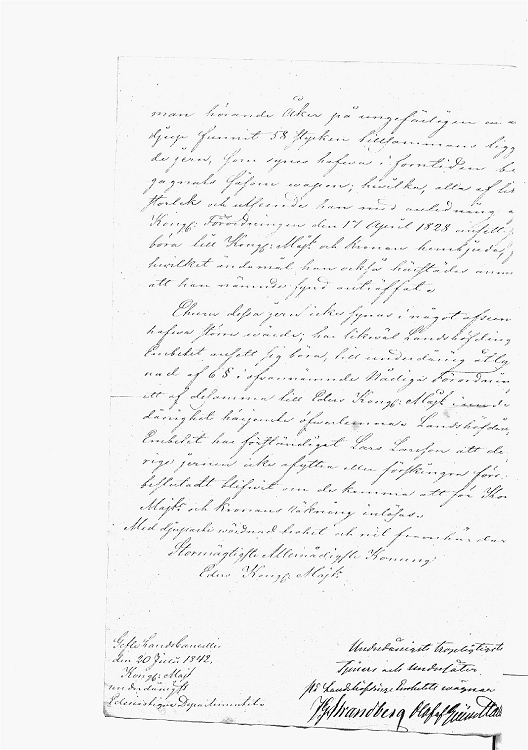 man hörande Åker på ungefärligen en a
djup funnit 58 stycken tillsammans ligg
de jern, som synes hafwa i forntiden be
gagnats såsom wapen, hwilka, alla af lika
storlek och utseende han med anledning a
Kongl: Förordningen den 17 April 1828 ansett
böra till Kongl: Majt och Kronan hembjudas,
hwilket ändamål han också härstädes anm
att han nämnde fynd anträffat.
Ehuru dessa jern icke synas i något afseen
hafwa större wärde, har likwäl Landshöfding
Embetet ansett sig böra, till underdånig åtly
nad af 6 § i ofwannämnde Nådiga Förordnin
ett af desamma till Eders Kongl: Majt i unde
dånighet härjemte öfwerlemna. Landshöfdin
Embetet har förständigat Lars Larsson att de
riga jernen icke afyttra eller förskingra förr
beslutadt blifwit om de komma att för Kon
Majts och Kronans räkning inlösas.
Med djupaste wördnad trohet och nit framhärdar
Stormägtigste Allernådigste Konung
Eders Kongl: Majts
Gefle Landscancellie
den 20 Juli 1842.
Kongl: Majt
underdånigst
Ecklesiastique Departementet
Underdånigste tropligtigste
tjenare och undersåter
På Landshöfdinge Embetets wägnar
Strandberg Olof